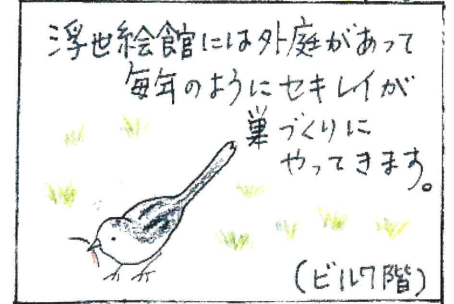 浮世絵館には外庭があって
毎年のようにセキレイが
巣づくりに
やってきます。
(ビル7階)